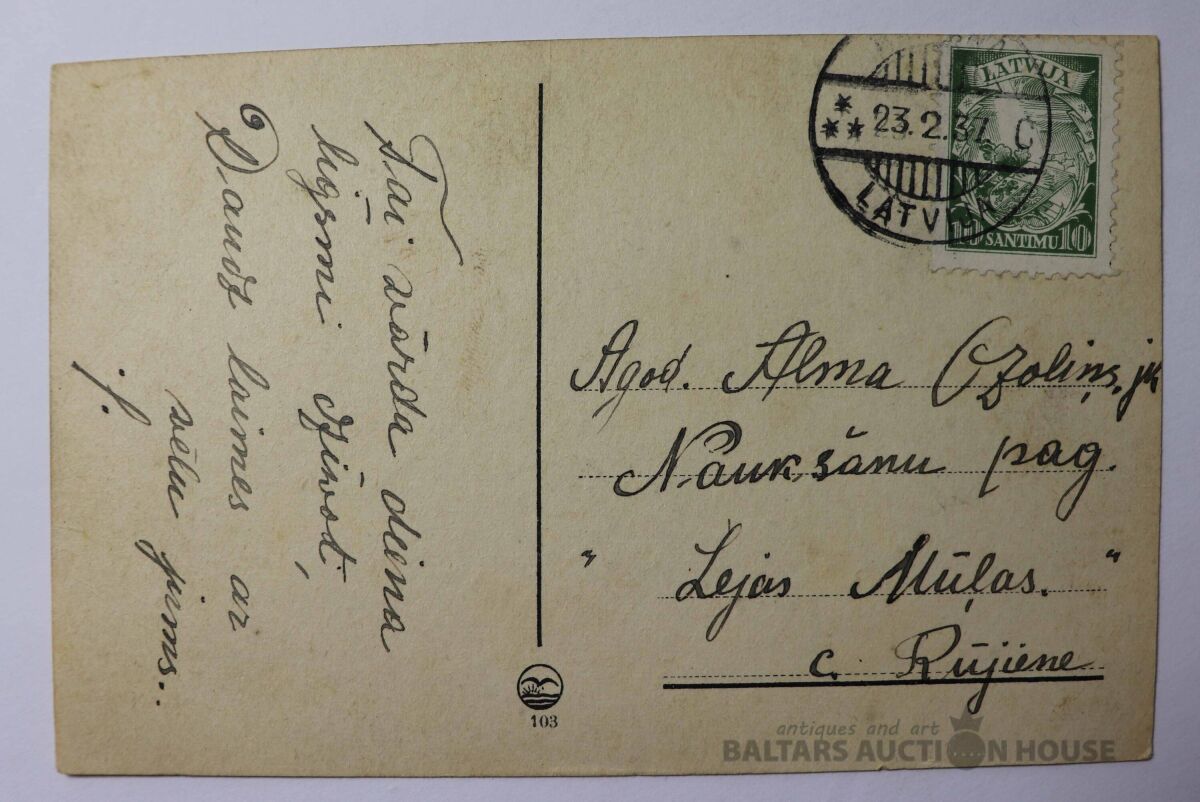 Tai vārda diena
līgsmi dzīvot,
Daudz laimes ar
vēlu pirms..
LATVIJA
23.2.37. C
LATVIJA
10 SANTIMU 10
Agod. Alma Ozoliņ. jk
Naukšānu pag.
" Lejas Mūļas. "
c. Rūjiene
103
antiques and art
BALTARS AUCTION HOUSE